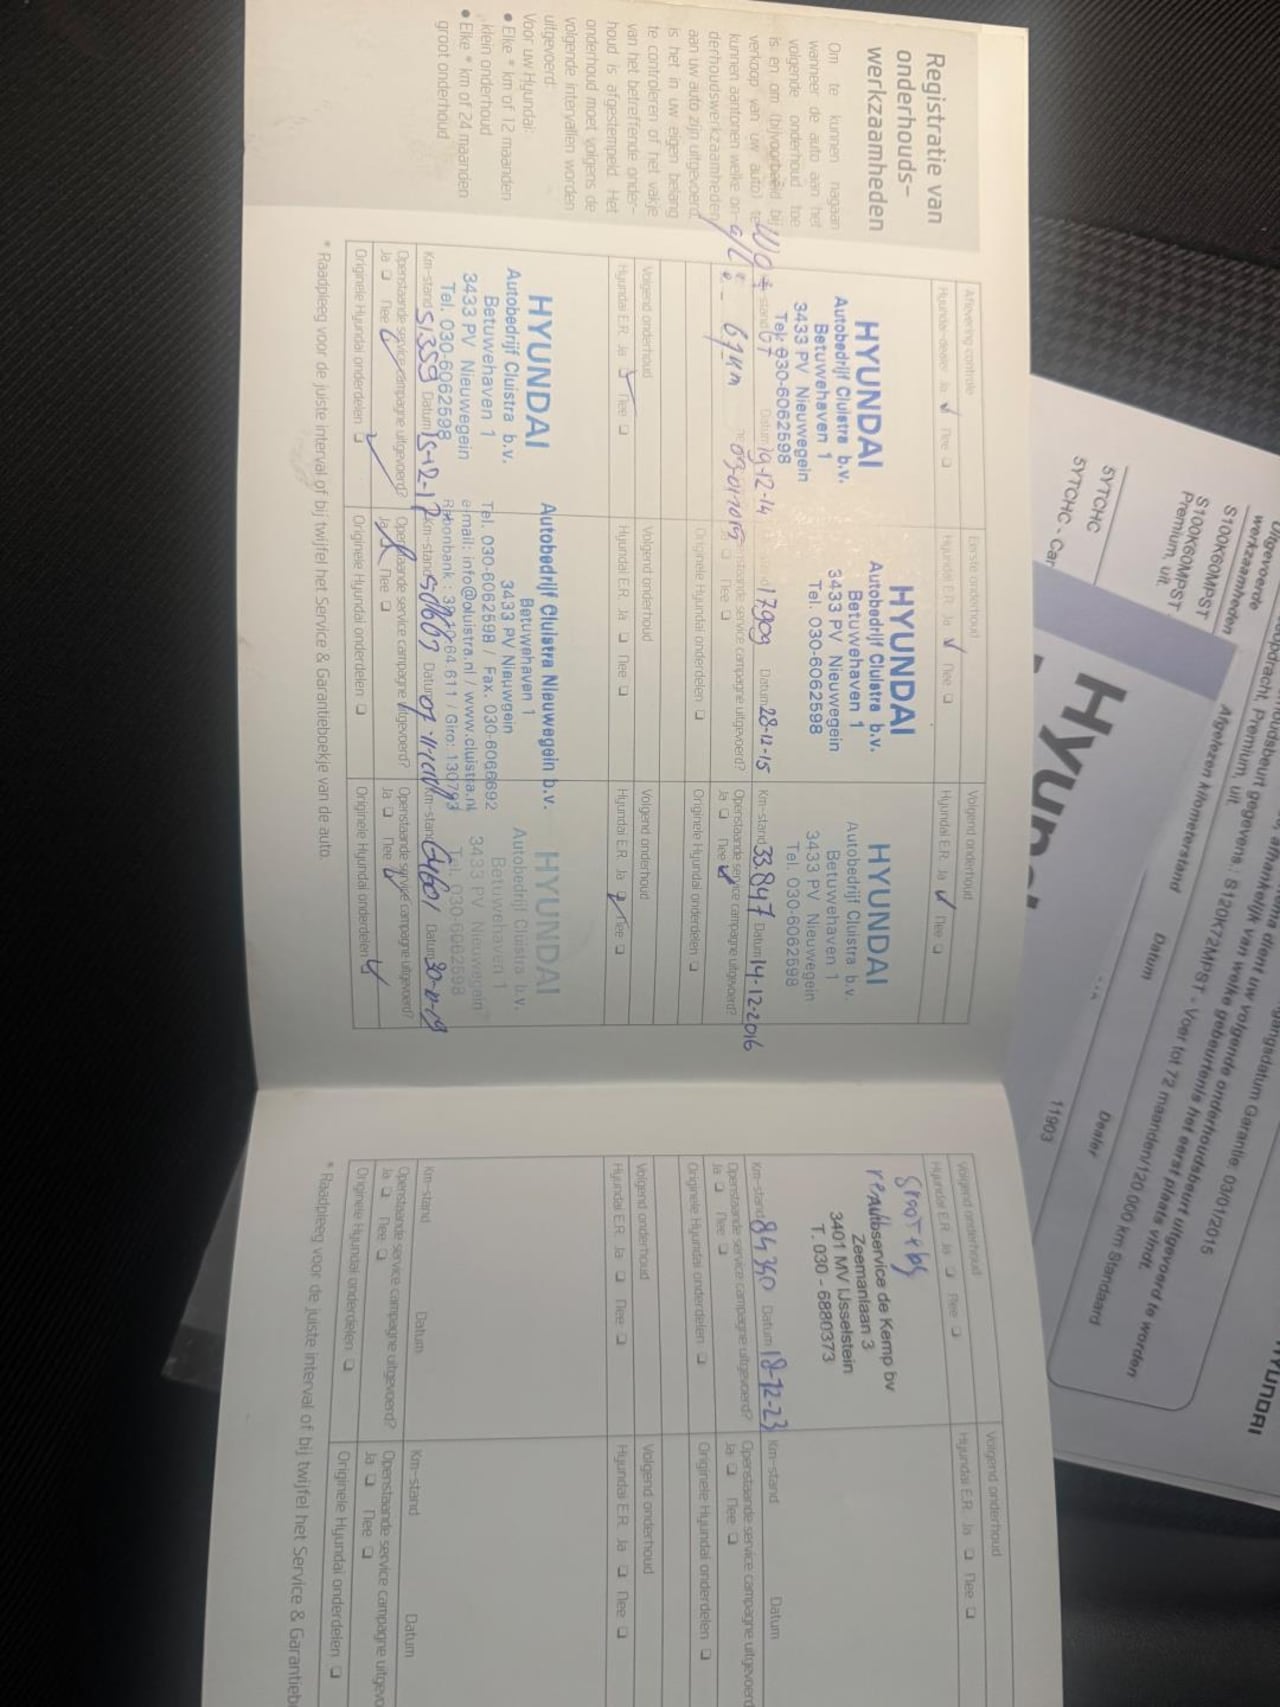 Registratie van
onderhouds-
werkzaamheden
Om te kunnen nagaan
wanneer de auto aan het
volgende onderhoud toe
is en om (bijvoorbeeld bij
verkoop van uw auto) te
kunnen aantonen welke on-
derhoudswerkzaamheden
aan uw auto zijn uitgevoerd,
is het in uw eigen belang
te controleren of het vakje
van het betreffende onder-
houd is afgestempeld. Het
onderhoud moet volgens de
volgende intervallen worden
uitgevoerd:
Voor uw Hyundai:
• Elke * km of 12 maanden
klein onderhoud
• Elke * km of 24 maanden
groot onderhoud
Aflevering controle
Hyundai-dealer Ja ❑ Nee ❑
HYUNDAI
Autobedrijf Cluistra b.v.
Betuwehaven 1
3433 PV Nieuwegein
Tel. 030-6062598
Datum 19-12-14
Eerste onderhoud
Hyundai E.R. Ja ❑ Nee ❑
HYUNDAI
Autobedrijf Cluistra b.v.
Betuwehaven 1
3433 PV Nieuwegein
Tel. 030-6062598
17909 Datum 28-12-15
Openstaande service campagne uitgevoerd?
Ja ❑ Nee ❑
Originele Hyundai onderdelen ❑
Volgend onderhoud
Hyundai E.R. Ja ❑ Nee ❑
HYUNDAI
Autobedrijf Cluistra b.v.
Betuwehaven 1
3433 PV Nieuwegein
Tel. 030-6062598
Km-stand 33.847 Datum 14-12-2016
Openstaande service campagne uitgevoerd?
Ja ❑ Nee ❑
Originele Hyundai onderdelen ❑
Volgend onderhoud
Hyundai E.R. Ja ❑ Nee ❑
HYUNDAI
Autobedrijf Cluistra b.v.
Betuwehaven 1
3433 PV Nieuwegein
Tel. 030-6062598
Km-stand 51359 Datum 15-12-17
Openstaande service campagne uitgevoerd?
Ja ❑ Nee ❑
Originele Hyundai onderdelen ❑
Volgend onderhoud
Hyundai E.R. Ja ❑ Nee ❑
Autobedrijf Cluistra Nieuwegein b.v.
Betuwehaven 1
3433 PV Nieuwgein
Tel. 030-6062598 / Fax. 030-6066692
e-mail: info@cluistra.nl / www.cluistra.nl
Km-stand Datum
Openstaande service campagne uitgevoerd?
Ja ❑ Nee ❑
Originele Hyundai onderdelen ❑
Volgend onderhoud
Hyundai E.R. Ja ❑ Nee ❑
HYUNDAI
Autobedrijf Cluistra b.v.
Betuwehaven 1
3433 PV Nieuwegein
Tel. 030-6062598
Km-stand Datum
Openstaande service campagne uitgevoerd?
Ja ❑ Nee ❑
Originele Hyundai onderdelen ❑
* Raadpleeg voor de juiste interval of bij twijfel het Service & Garantieboekje van de auto.
Volgend onderhoud
Hyundai E.R. Ja ❑ Nee ❑
Autoservice de Kemp bv
Zeemanlaan 3
3401 MV IJsselstein
T. 030 - 6880373
Km-stand 84340 Datum 18-12-23
Openstaande service campagne uitgevoerd?
Ja ❑ Nee ❑
Originele Hyundai onderdelen ❑
Volgend onderhoud
Hyundai E.R. Ja ❑ Nee ❑
Km-stand Datum
Openstaande service campagne uitgevoerd
Ja ❑ Nee ❑
Originele Hyundai onderdelen ❑
Volgend onderhoud
Hyundai E.R. Ja ❑ Nee ❑
Km-stand Datum
Openstaande service campagne uitgevoerd?
Ja ❑ Nee ❑
Originele Hyundai onderdelen ❑
Volgend onderhoud
Hyundai E.R. Ja ❑ Nee ❑
Km-stand Datum
Openstaande service campagne uitgevo
Ja ❑ Nee ❑
Originele Hyundai onderdelen ❑
* Raadpleeg voor de juiste interval of bij twijfel het Service & Garantieb
Garantie: 03/01/2015
dient uw volgende onderhoudsbeurt uitgevoerd te worden
van welke gebeurtenis het eerst plaats vindt.
gegevens: S120K72MPST - Voer tot 72 maanden/120 000 km Standaard
Premium, uit
Afgelezen kilometerstand
Datum
Dealer
11903
Uitgevoerde
werkzaamheden
S100K60MPST
S100K60MPST
Premium uit
5YTCHC
5YTCHC - Car
HYUNDAI